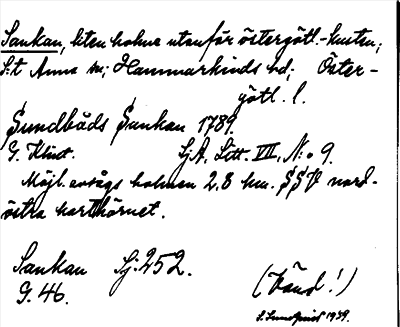 Sankan, liten holme utanför östergötl.-kusten;
S:t Anna sn; Hammarkinds hd; Öster-
götl. l.
Sundbåds Sankan 1789.
G. Klint. SjA, Litt. VII, N:o 9.
Möjl. avsågs holmen 2,8 km. SSV nord-
östra karthörnet.
Sankan Sj. 252.
G. 46.
(Vänd!)
S. Lundqvist 1939.